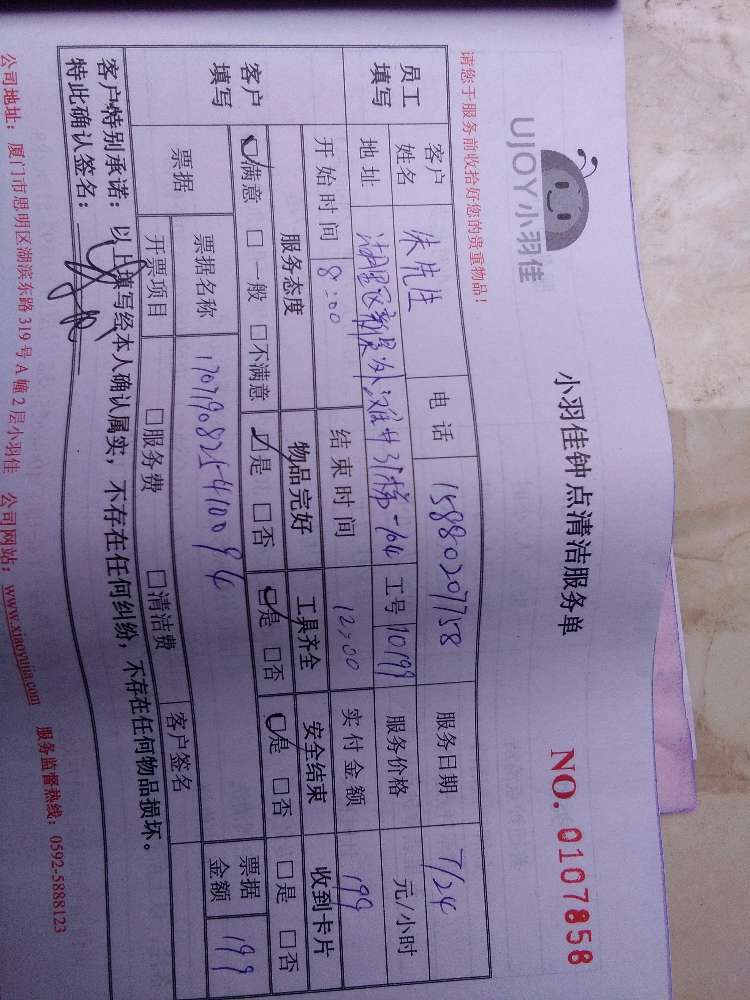 UJOY小羽佳
小羽佳钟点清洁服务单
NO. 0107858
请您于服务前收拾好您的贵重物品!
员工填写 客户姓名 朱先生 电话 15880207758 服务日期 7/24
地址 湖里区 工号 10199 服务价格 元/小时
开始时间 8:00 结束时间 12:00 实付金额 199
客户填写 服务态度 物品完好 工具齐全 安全结束 收到卡片
☑满意 □一般 □不满意 ☑是 □否 ☑是 □否 ☑是 □否 □是 □否
票据 票据名称 1707190825410094 票据金额 199
开票项目 □服务费 □清洁费 客户签名
客户特别承诺：以上填写经本人确认属实，不存在任何纠纷，不存在任何物品损坏。
特此确认签名：
公司地址：厦门市思明区湖滨东路319号A幢2层小羽佳 公司网站：www.xiaoyujia.com 服务监督热线：0592-5888123